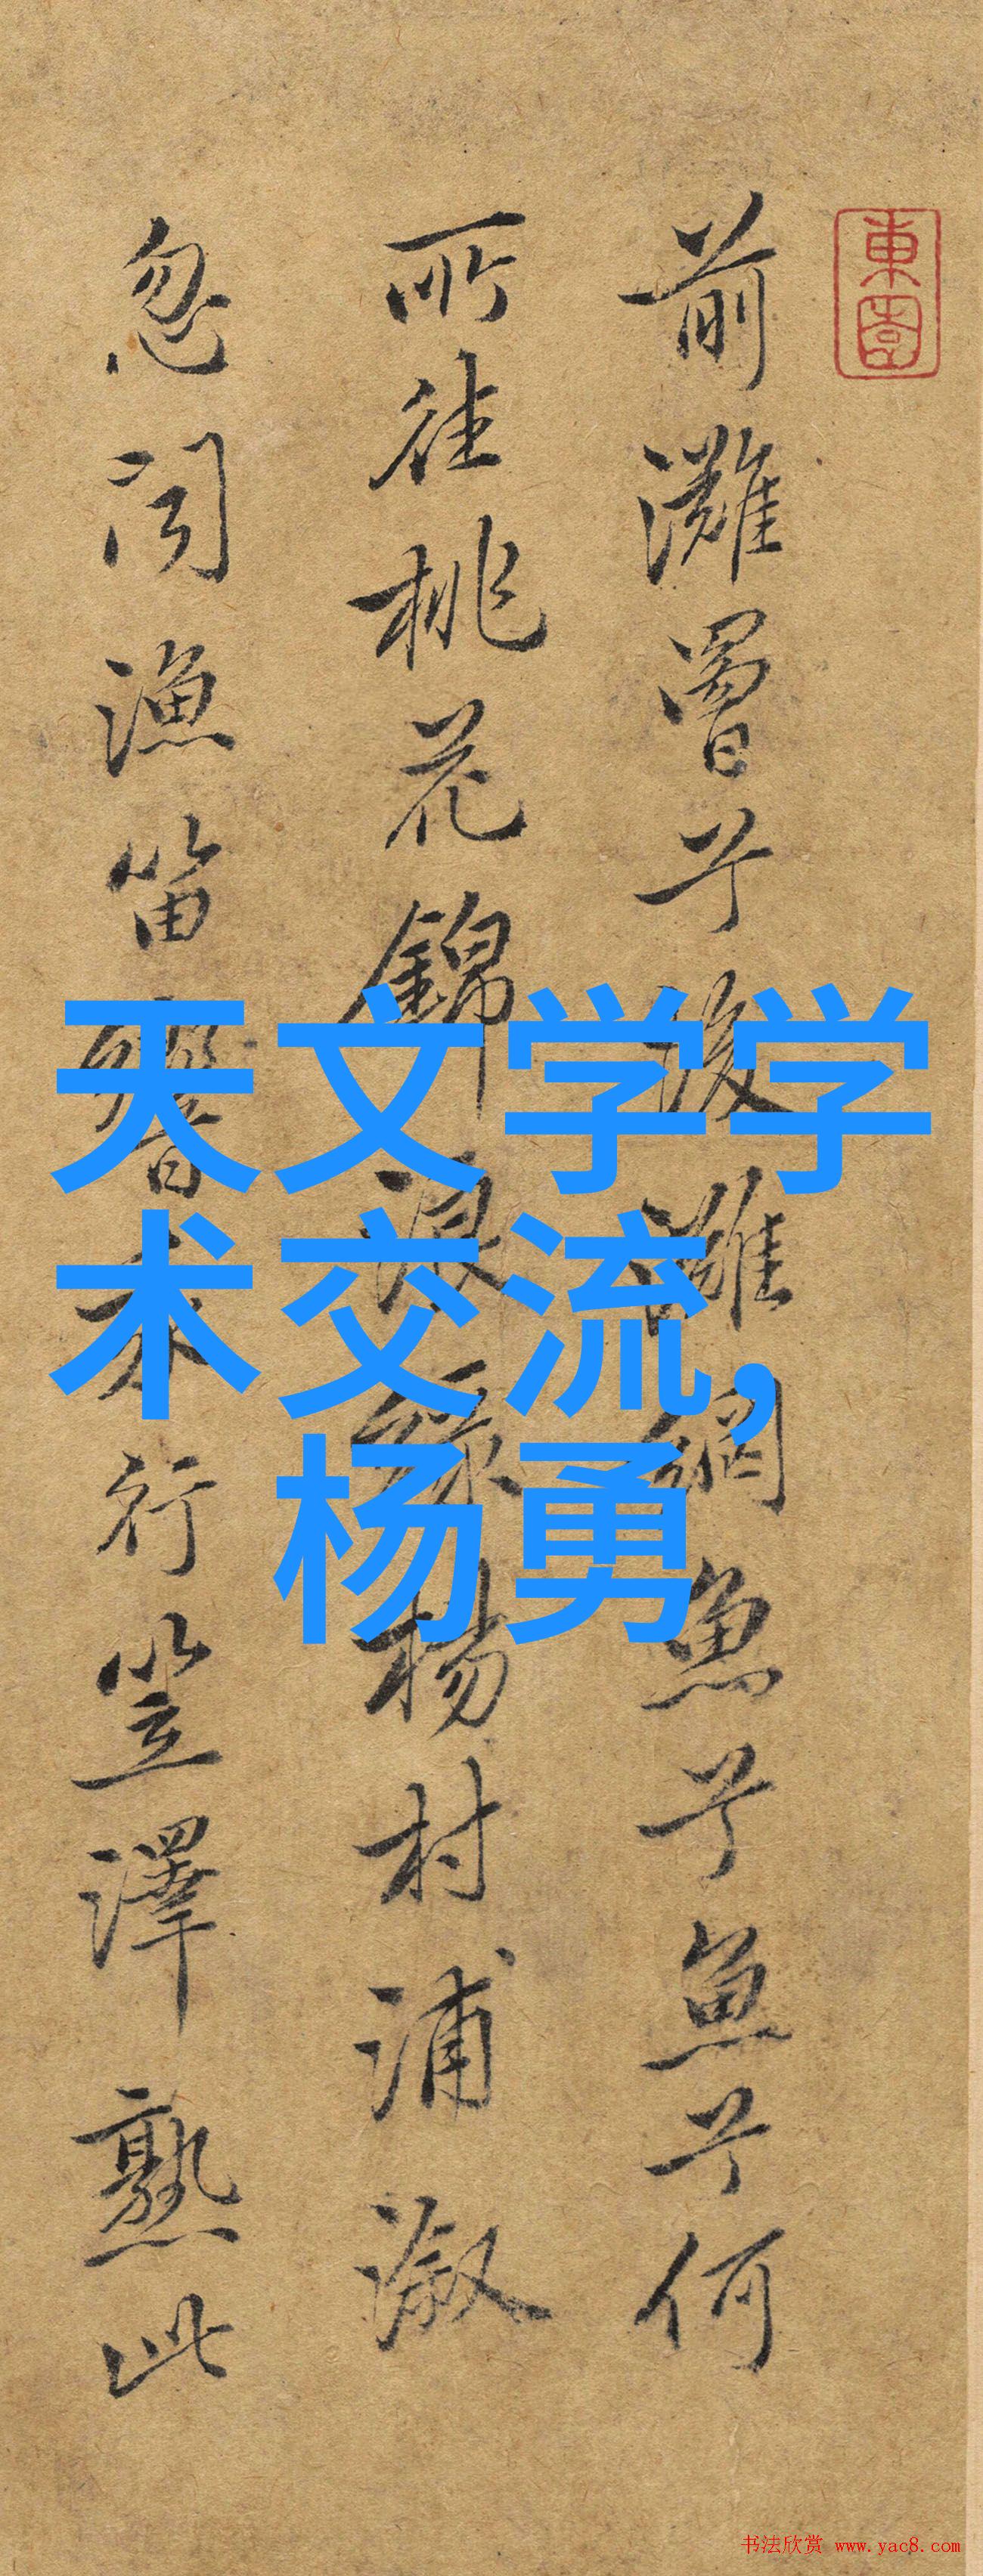 東園
前灘罾兮後灘網魚兮魚兮何
所往桃花錦浪綠楊村浦溆
忽聞漁笛響行笠澤熟此
天文学学
术交流,
杨勇
书法欣赏 www.yac8.com